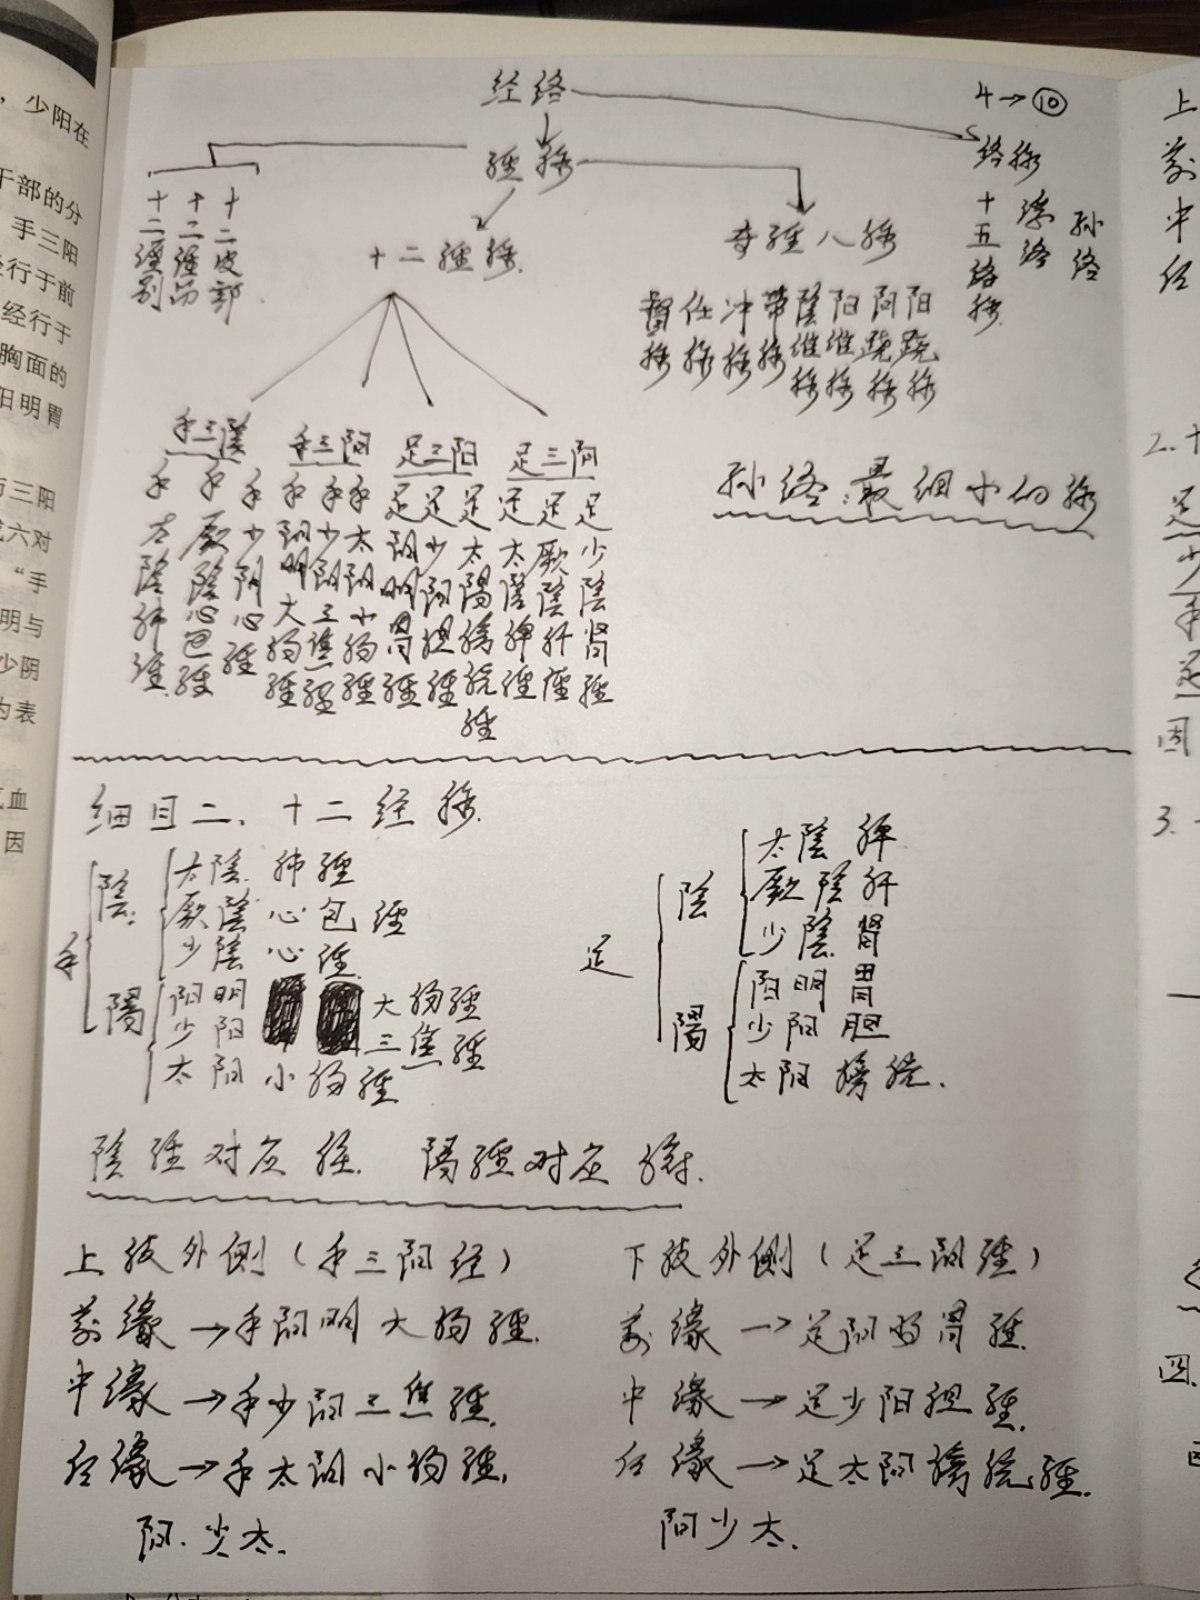 ，少阳在
干部的分
手三阳
经行于前
经经行于
胸面的
阳明胃
与三阳
成六对
“手
明与
少阴
为表
气血
因
经络
4→⑩
經脉
络脉
十二經别
十二經筋
十二皮部
十二經脉
奇經八脉
十五络脉
浮络
孙络
督脉
任脉
冲脉
带脉
陰维脉
阳维脉
阴跷脉
阳跷脉
手三陰
手三阳
足三阳
足三阴
手太陰肺經
手厥陰心包經
手少阴心經
手阳明大肠經
手少阳三焦經
手太阳小肠經
足阳明胃經
足少阳胆經
足太陽膀胱經
足太陰脾經
足厥陰肝經
足少陰肾經
孙络:最细小的脉
细目二、十二经脉
手
陰
太陰 肺經
厥陰 心包經
少陰 心經
陽
阳明 大肠經
少阳 三焦經
太阳 小肠經
足
陰
太陰 脾
厥陰 肝
少陰 腎
陽
阳明 胃
少阳 胆
太阳 膀胱.
陰經对应脏. 陽經对应腑.
上肢外侧(手三阳经)
前缘→手阳明大肠經.
中缘→手少阳三焦經.
后缘→手太阳小肠經.
阳.少太.
下肢外侧(足三阳經)
前缘→足阳明胃經.
中缘→足少阳胆經.
后缘→足太阳膀胱經.
阳少太.
上
前
中
后
2.十
足
少
手
足
固
3.
四.